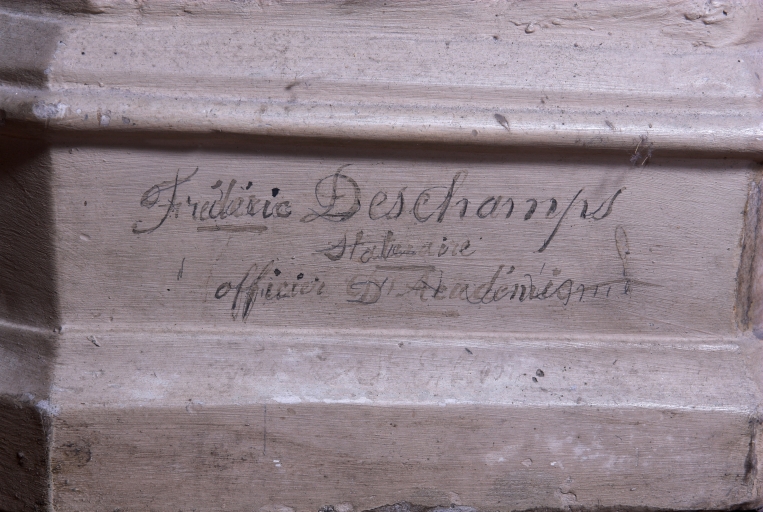 Frédéric Deschamps
Statuaire
officier D'Académie